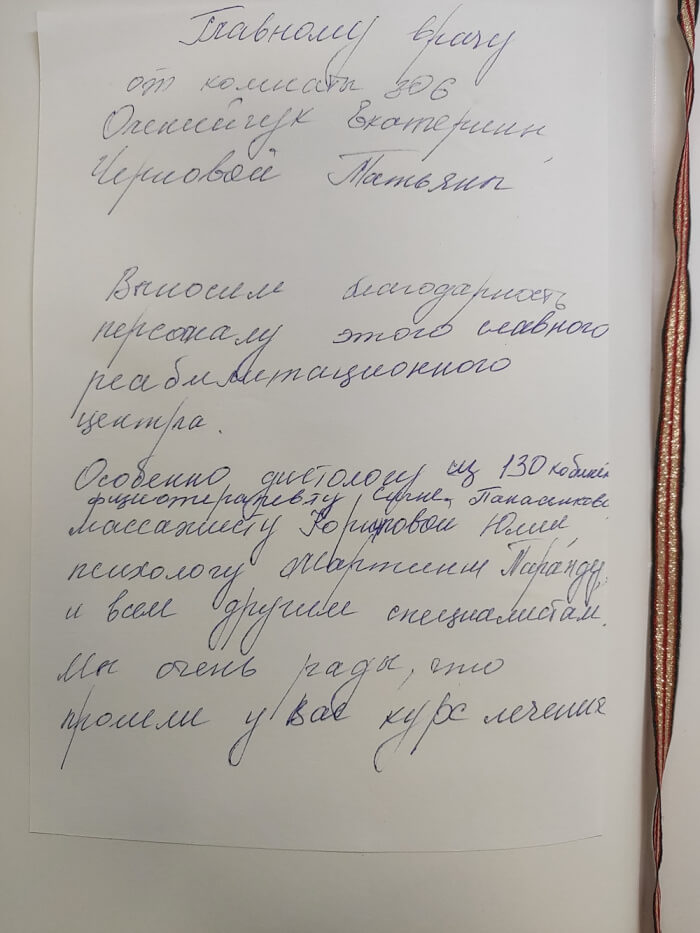 Главному врачу
от комнаты 306
Екатерины
Черновой Татьяны
Выносим благодарность
персоналу этого славного
реабилитационного
центра.
Особенно диетологу из 130 кабине
физиотерапевту
массажисту Юлии
психологу
и всем другим специалистам.
Мы очень рады, что
прошли у Вас курс лечения